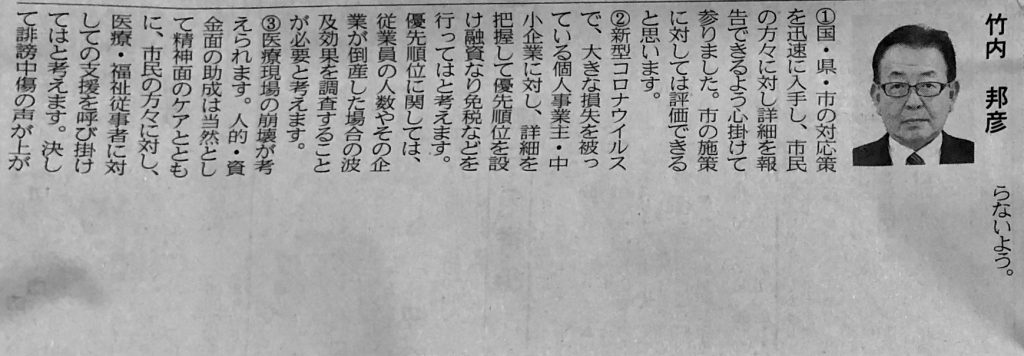 竹内 邦彦
①国・県・市の対応策
を迅速に入手し、市民
の方々に対し詳細を報
告できるよう心掛けて
参りました。市の施策
に対しては評価できる
と思います。
②新型コロナウイルス
で、大きな損失を被っ
ている個人事業主・中
小企業に対し、詳細を
把握して優先順位を設
け融資なり免税などを
行ってはと考えます。
優先順位に関しては、
従業員の人数やその企
業が倒産した場合の波
及効果を調査すること
が必要と考えます。
③医療現場の崩壊が考
えられます。人的・資
金面の助成は当然とし
て精神面のケアととも
に、市民の方々に対し、
医療・福祉従事者に対
しての支援を呼び掛け
てはと考えます。決し
て誹謗中傷の声が上が
らないよう。